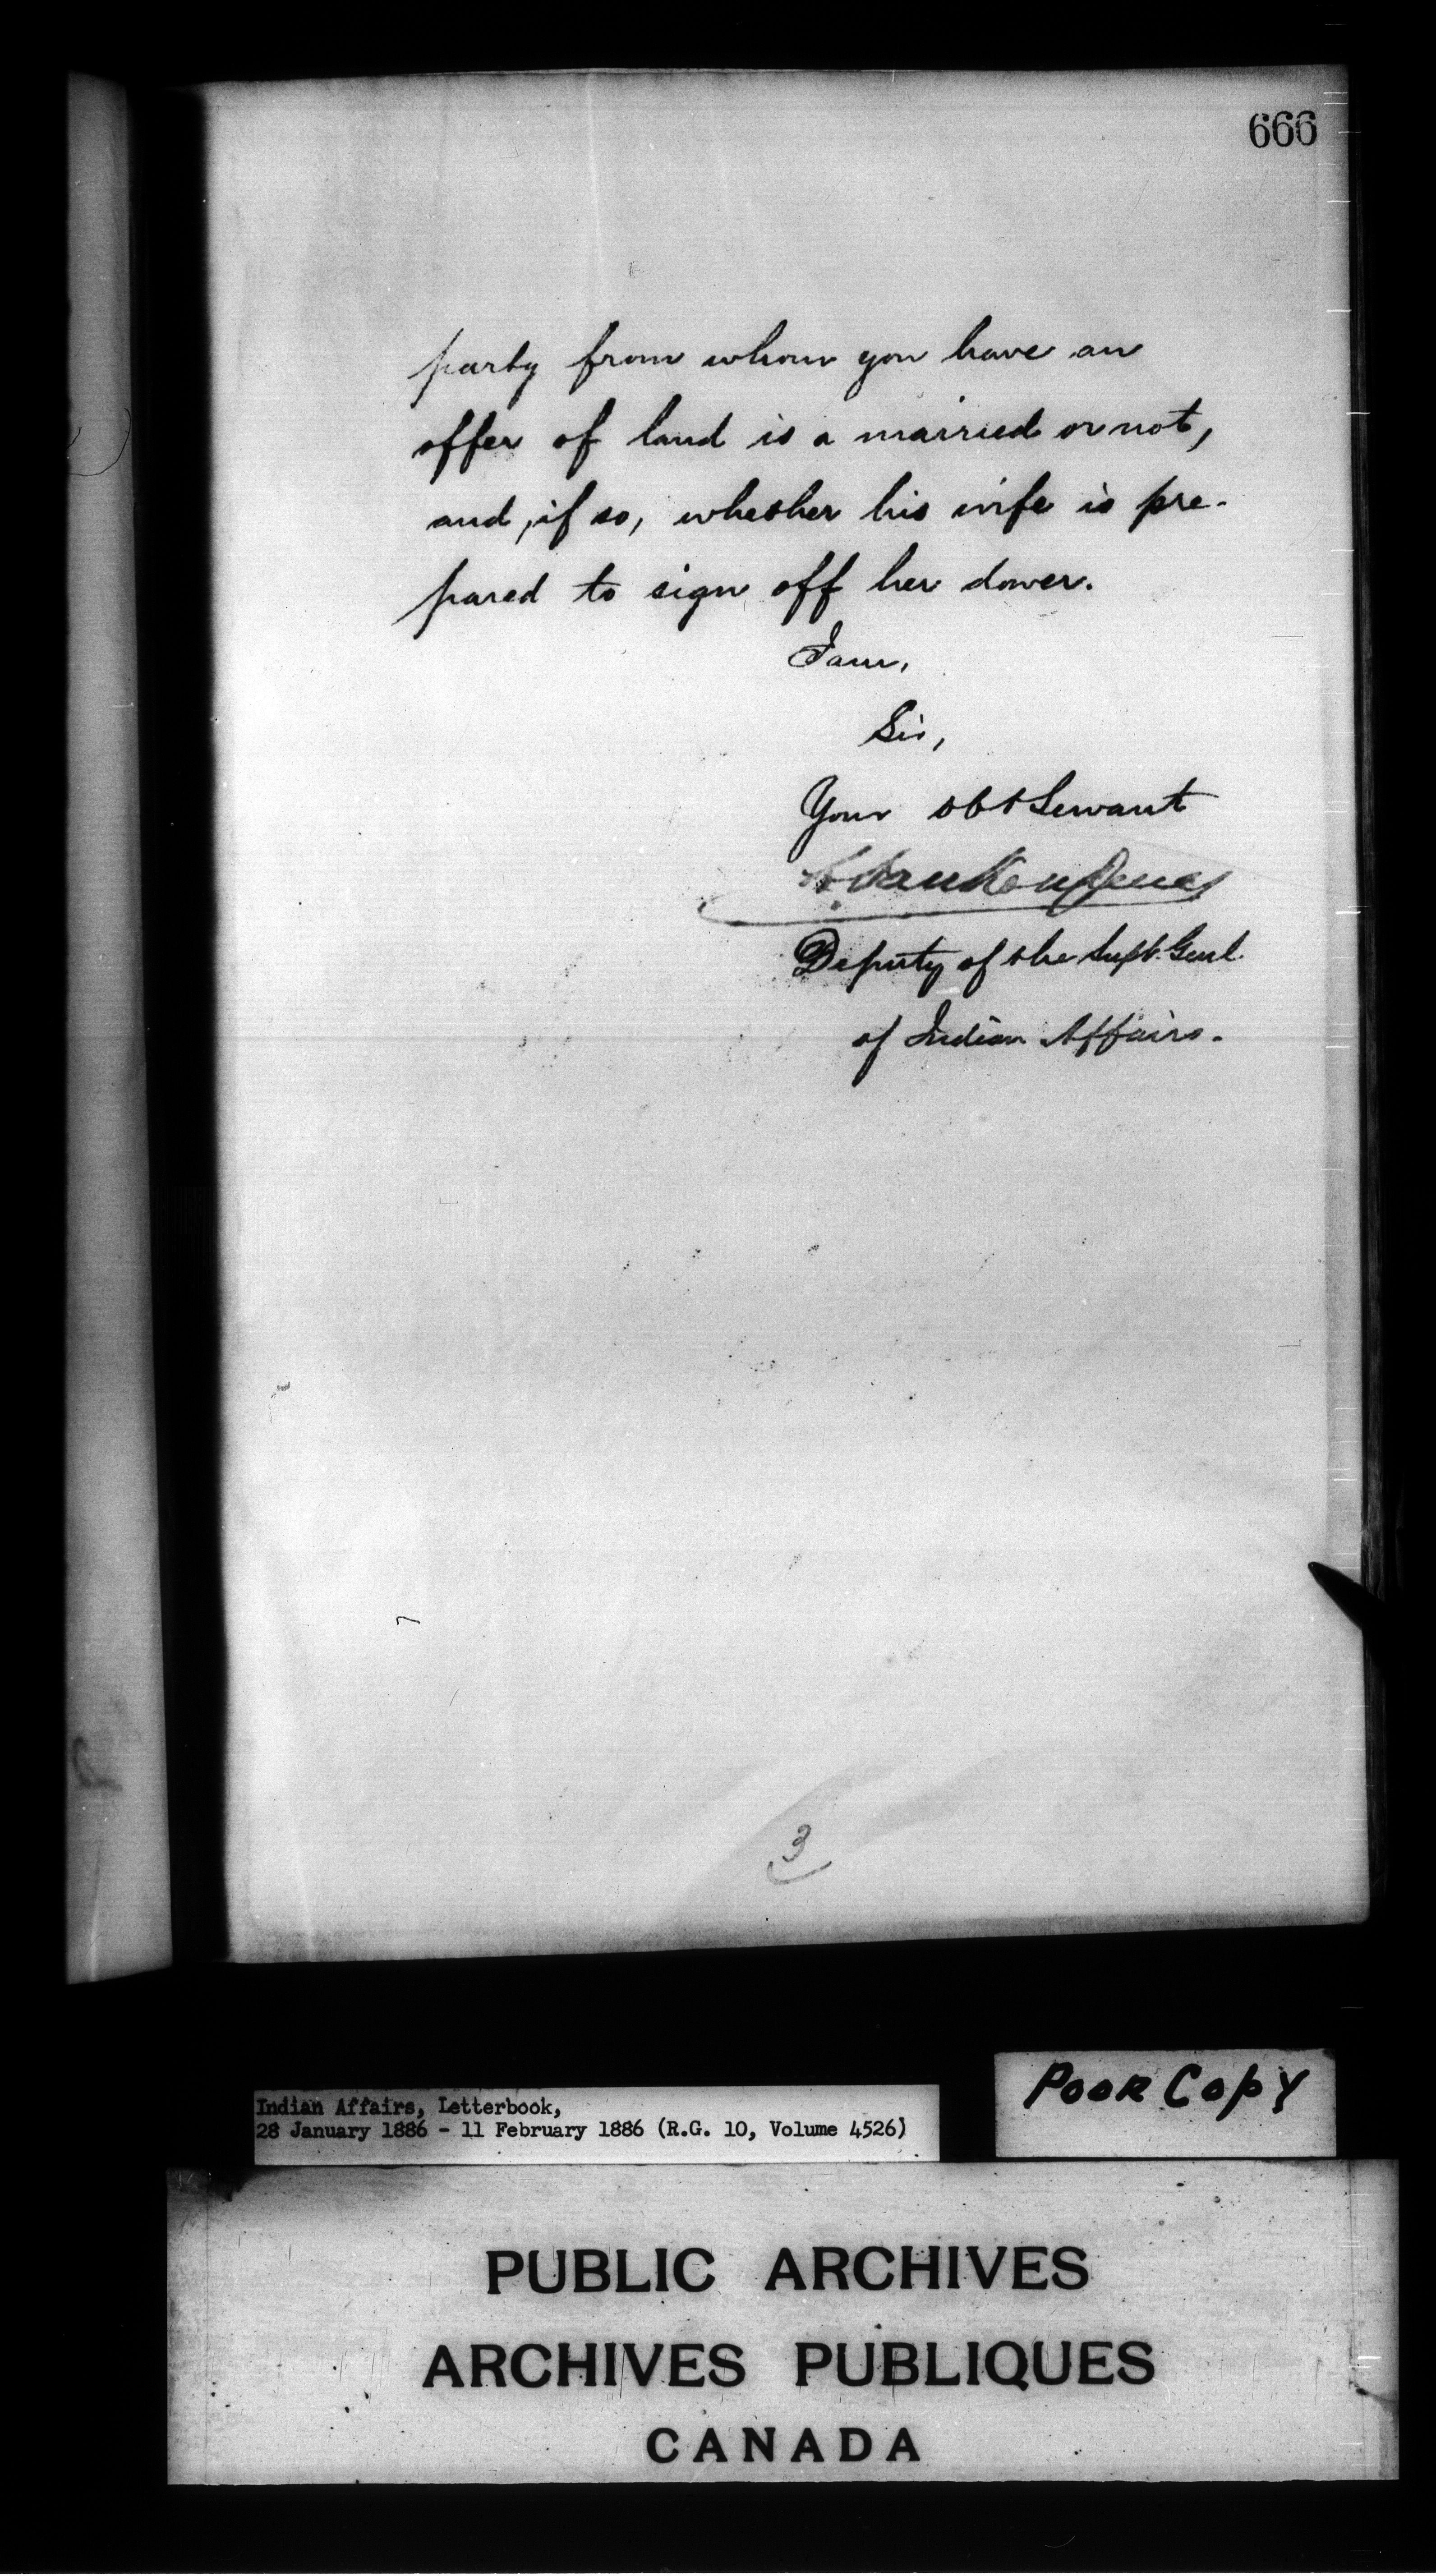 666
party from whom you have an
offer of land is a married or not,
and, if so, whether his wife is pre-
pared to sign off her dower.
I am,
Sir,
Your obt Servant
L. Vankoughnet
Deputy of the Supt. Genl.
of Indian Affairs.
3
Indian Affairs, Letterbook,
28 January 1886 - 11 February 1886 (R.G. 10, Volume 4526)
POOR COPY
PUBLIC ARCHIVES
ARCHIVES PUBLIQUES
CANADA